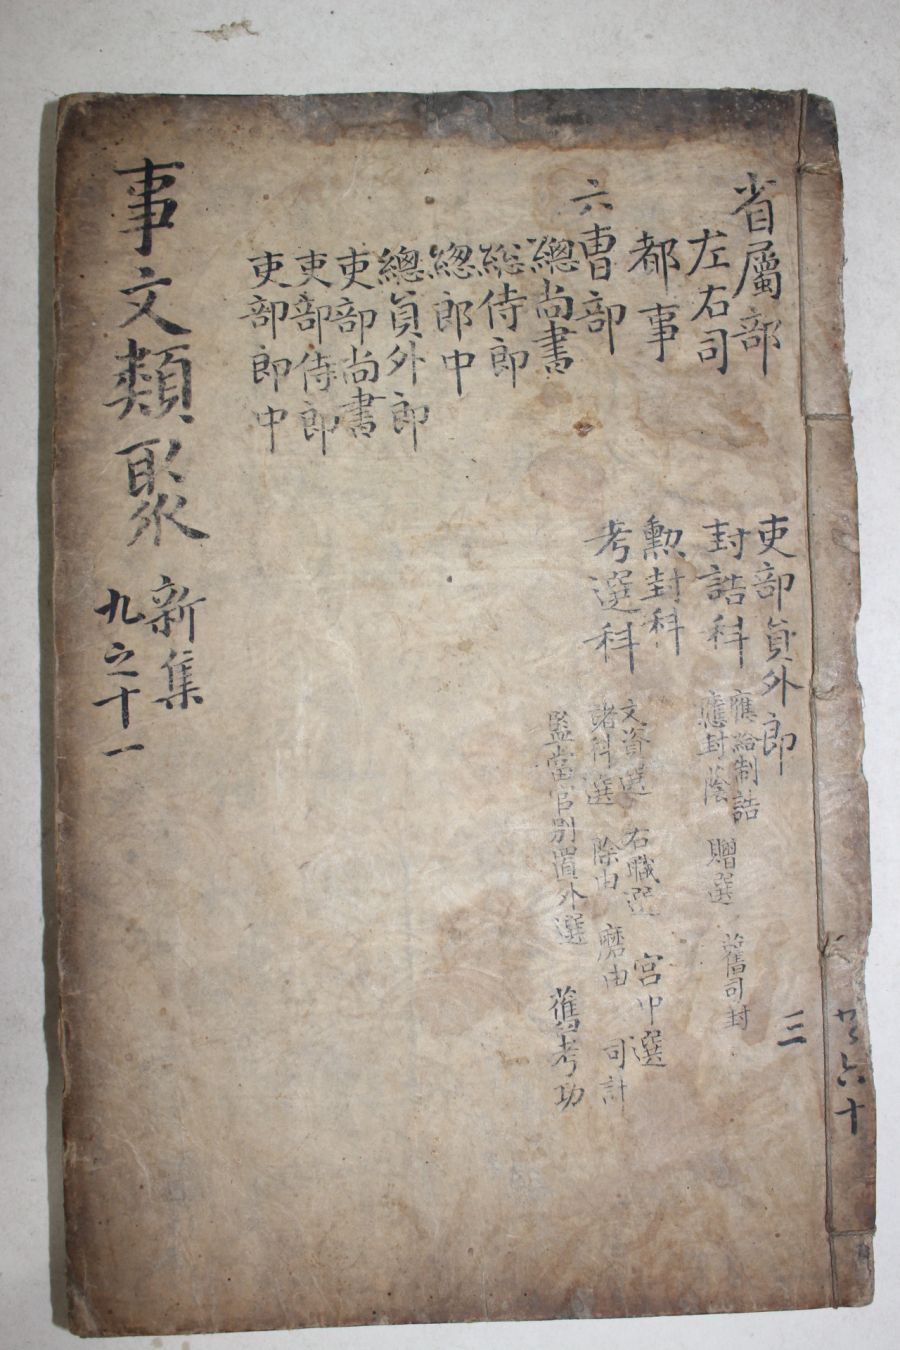 省屬部
左右司
都事
六曺部
總尚書
総侍郎
總郎中
總員外郎
吏部尚書
吏部侍郎
吏部郎中
吏部員外郎
封誥科
應給制誥
應封蔭 贈選 舊司封
勲封科
考選科
文資選 右職選 宮中選
諸科選 除由 磨由 司計
監當官別置外選 舊考功
事文類聚 新集
九之十一
三
共六十